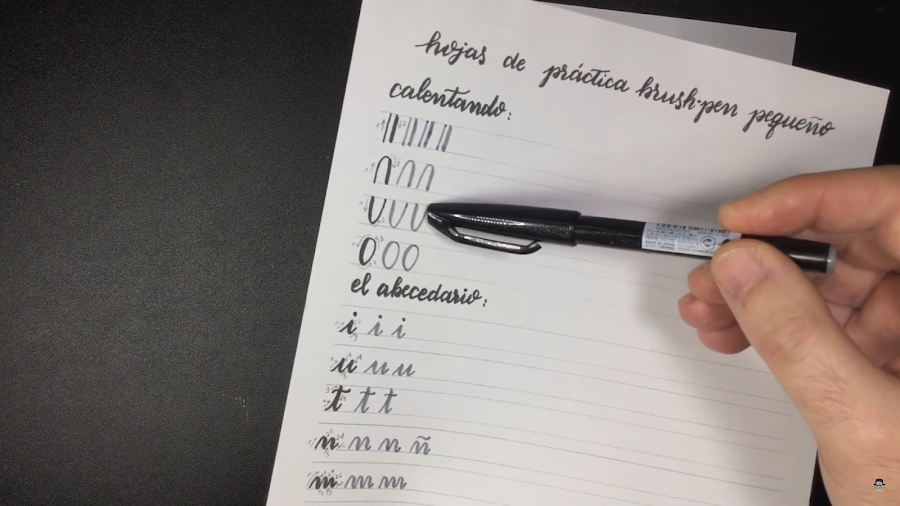 hojas de práctica brush-pen pequeño
calentando:
el abecedario:
i i i
u u u
t t t
n n n ñ
m m m